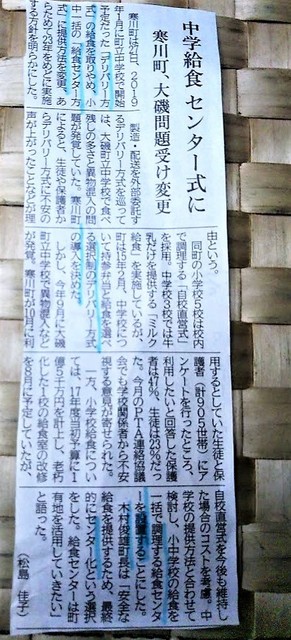 中学給食センター式に
寒川町、大磯問題受け変更
寒川町は27日、2019
年1月に町立中学校で開始
予定だった「デリバリー方
式」の給食を取りやめ、小
中一括の「給食センター方
式」に提供方法を変更、あ
らためて20年をめどに実施
する方針を明らかにした。
製造・配送を外部委託す
るデリバリー方式を巡って
は、大磯町立中学校で食べ
残しの多さと異物混入の問
題が発覚していた。寒川町
によると、生徒や保護者か
らデリバリー方式に不安の
声が上がったことなどが理
由という。
同町の小学校5校は校内
で調理する「自校直営式」
を採用。中学校3校では牛
乳だけを提供する「ミルク
給食」を実施しているが、
町は15年2月、中学校につ
いて持参弁当と給食を選べ
る選択制のデリバリー方式
の導入を決めた。
しかし、今年9月に大磯
町立中学校で異物混入など
が発覚。寒川町が10月に利
用するとしていた生徒と保
護者（計905世帯）にア
ンケートを行ったところ、
利用したいと回答した保護
者は47%、生徒は%だっ
た。今月のPTA連絡協議
会でも学校関係者から不安
視する意見が寄せられた。
一方、小学校給食につい
ては、17年度当初予算に1
億5千万円を計上し、老朽
化した1校の給食室の改修
を8月に予定していたが、
自校直営式を今後も維持し
た場合のコストを考慮。中
学校の提供方法と合わせて
検討し、小中学校の給食を
一括で調理する給食センタ
ーを設置することにした。
木村俊雄町長は「安全な
給食を提供するため、最終
的にセンター化という選択
をした。給食センターは町
有地を活用していきたい」
と語った。
（松島 佳子）